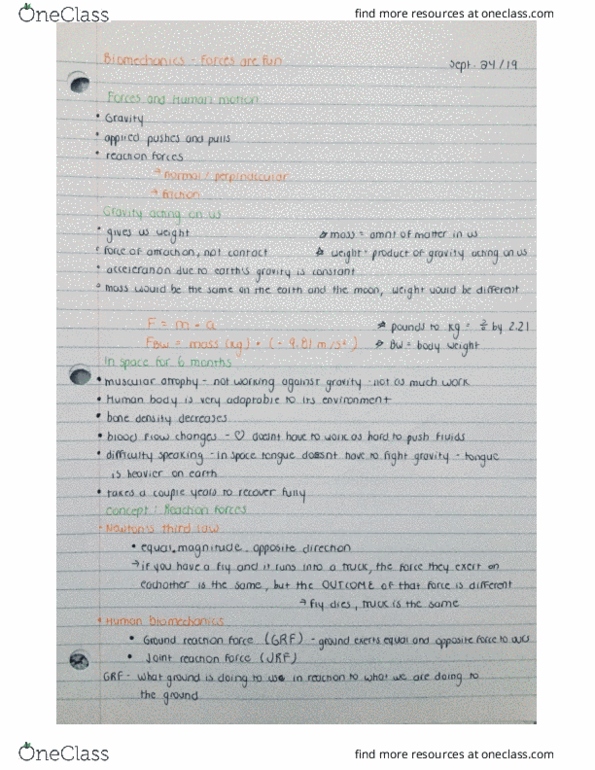 OneClass
find more resources at oneclass.com
Biomechanics - Forces are fun
Sept. 24/19
Forces and Human motion
• Gravity
• applied pushes and pulls
• reaction forces
→ normal / perpindicular
→ friction
Gravity acting on us
• gives us weight
mass = amnt of matter in us
• force of attraction, not contact
weight = product of gravity acting on us
• acceleration due to earth's gravity is constant
• mass would be the same on the earth and the moon, weight would be different
F = m • a
pounds to kg = by 2.21
FBW = mass (kg) • (- 9.81 m/s²)
BW = body weight
In space for 6 months
• muscular atrophy - not working against gravity - not as much work
• Human body is very adaptable to its environment
• bone density decreases
• blood flow changes - ♡ doesnt have to work as hard to push fluids
• difficulty speaking - in space tongue doesnt have to fight gravity - tongue
is heavier on earth
• takes a couple years to recover fully
Concept: Reaction forces
• Newton's third law
• equal magnitude, opposite direction
→ if you have a fly and it runs into a truck, the force they exert on
eachother is the same, but the OUTCOME of that force is different
→ fly dies, truck is the same
• Human Biomechanics
• Ground reaction force (GRF) - ground exerts equal and opposite force to ours
• Joint reaction force (JRF)
GRF - what ground is doing to us in reaction to what we are doing to
the ground
OneClass
find more resources at oneclass.com